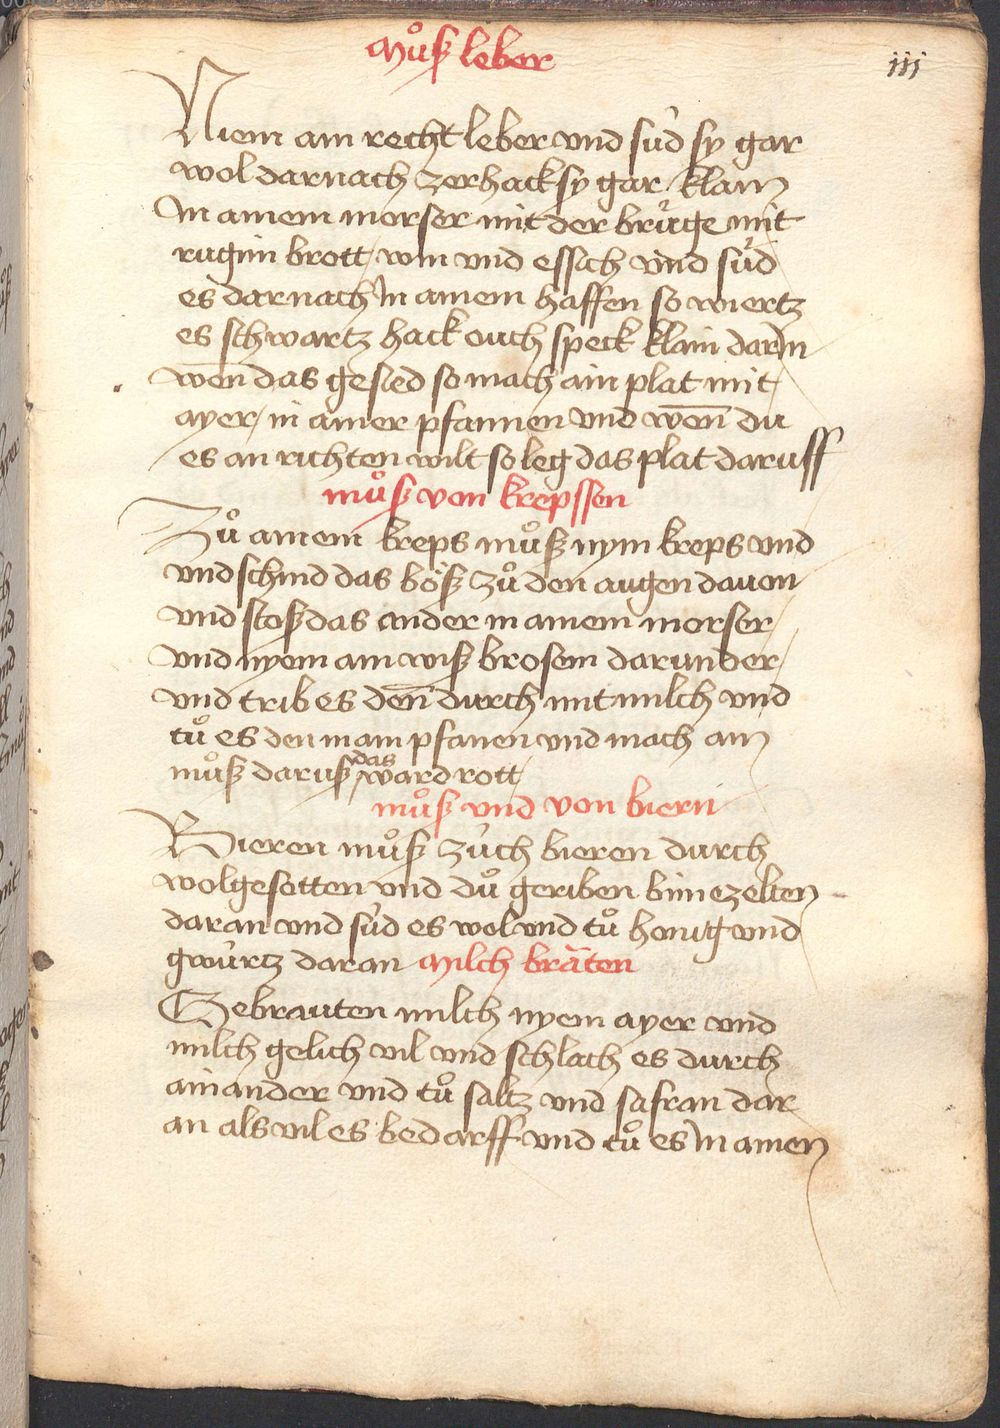 Můß leber
iij
Niem ain recht leber vnd sůd sy gar
wol darnach zerhack sy gar klain
In ainem morser mit der brůge mit
rugim brott win vnd essich vnd sůd
es darnach In ainem haffen so wiertz
es schwartz hack ouch speck klain darIn
wen das gesied so mach ain plat mit
ayer in ainer pfannen vnd wen̄ du
es an richten wilt so leg das plat daruff
můß von krepssen
Zů ainem kreps můß nym kreps vnd
vnd schind das böß zů den augen dauon
vnd stoß das ander in ainem morser
vnd nyem ain wiß brosem darunder
vnd trib es den̄ durch mit milch vnd
tů es den in ain pfanen vnd mach ain
můß daruß das ward rott
můß vnd von biern
Bieren můß zu̇ch bieren durch
wolgesotten vnd dů geriben bimezelten
daran vnd sůd es wol vnd tů honig vnd
gwürtz daran Milch bräten
Gebrauten milch nyem ayer vnd
milch gelich vil vnd schlach es durch
ainander vnd tů saltz vnd safran dar
an als vil es bedarff vnd tů es In ainen